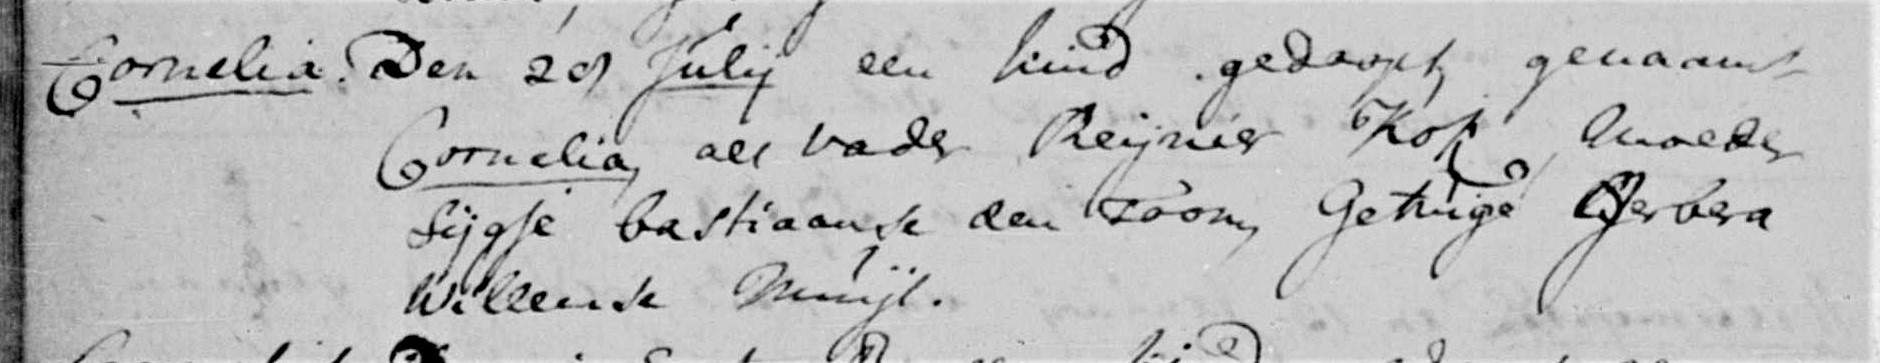 Cornelia. Den 29 Julij een kind gedoopt, genaamt
Cornelia, als vader Reijnier Kop, Moeder
Sijgje bastiaanse den toom, Getuige Gerbera
Willemse Muijs.